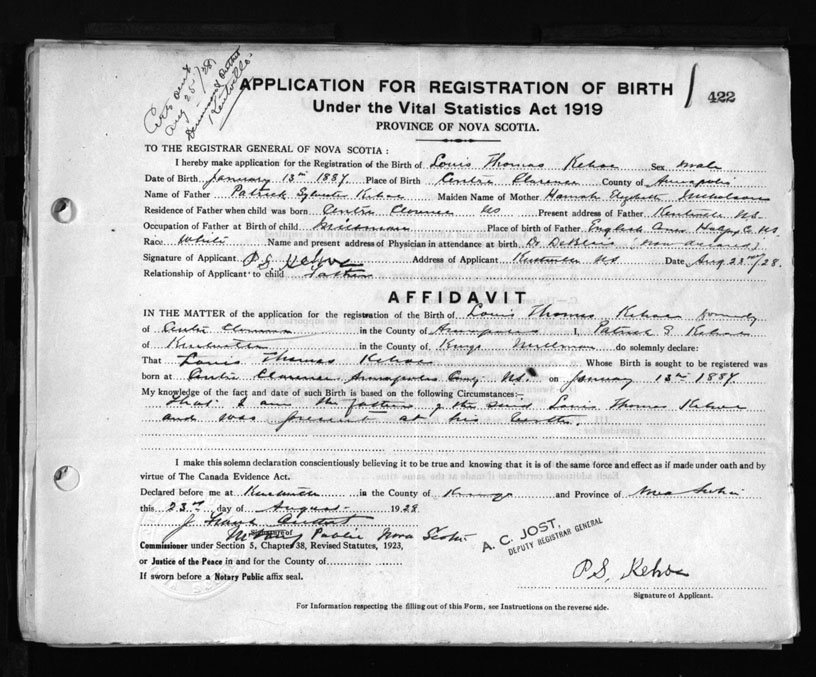 Certs sent
Aug 25/28
Kentville
APPLICATION FOR REGISTRATION OF BIRTH
422
Under the Vital Statistics Act 1919
PROVINCE OF NOVA SCOTIA.
TO THE REGISTRAR GENERAL OF NOVA SCOTIA :
I hereby make application for the Registration of the Birth of Louis Thomas Kehoe Sex male
Date of Birth January 13th 1887. Place of Birth Centre Clarence County of Annapolis
Name of Father Patrick Sylvester Kehoe Maiden Name of Mother Hannah Elizabeth Nicholson
Residence of Father when child was born Centre Clarence NS Present address of Father Kentville NS.
Occupation of Father at Birth of child Millman Place of birth of Father English Corner Halifax Co. NS
Race White Name and present address of Physician in attendance at birth Dr DeBlois (now deceased)
Signature of Applicant P S Kehoe Address of Applicant Kentville NS Date Aug 23rd/28.
Relationship of Applicant to child Father
AFFIDAVIT
IN THE MATTER of the application for the registration of the Birth of Louis Thomas Kehoe formerly
of Centre Clarence in the County of Annapolis I, Patrick S. Kehoe
of Kentville in the County of Kings Millman do solemnly declare:
That Louis Thomas Kehoe Whose Birth is sought to be registered was
born at Centre Clarence Annapolis County NS. on January 13th 1887.
My knowledge of the fact and date of such Birth is based on the following Circumstances:-
That I am the father of the said Louis Thomas Kehoe
and was present at his birth.
I make this solemn declaration conscientiously believing it to be true and knowing that it is of the same force and effect as if made under oath and by
virtue of The Canada Evidence Act.
Declared before me at Kentville in the County of Kings and Province of Nova Scotia
this 23rd day of August 1928
J Frank
Signature of
Notary Public Nova Scotia
Commissioner under Section 5, Chapter 38, Revised Statutes, 1923,
or Justice of the Peace in and for the County of
If sworn before a Notary Public affix seal.
A. C. JOST,
DEPUTY REGISTRAR GENERAL
P.S. Kehoe
Signature of Applicant.
For Information respecting the filling out of this Form, see Instructions on the reverse side.